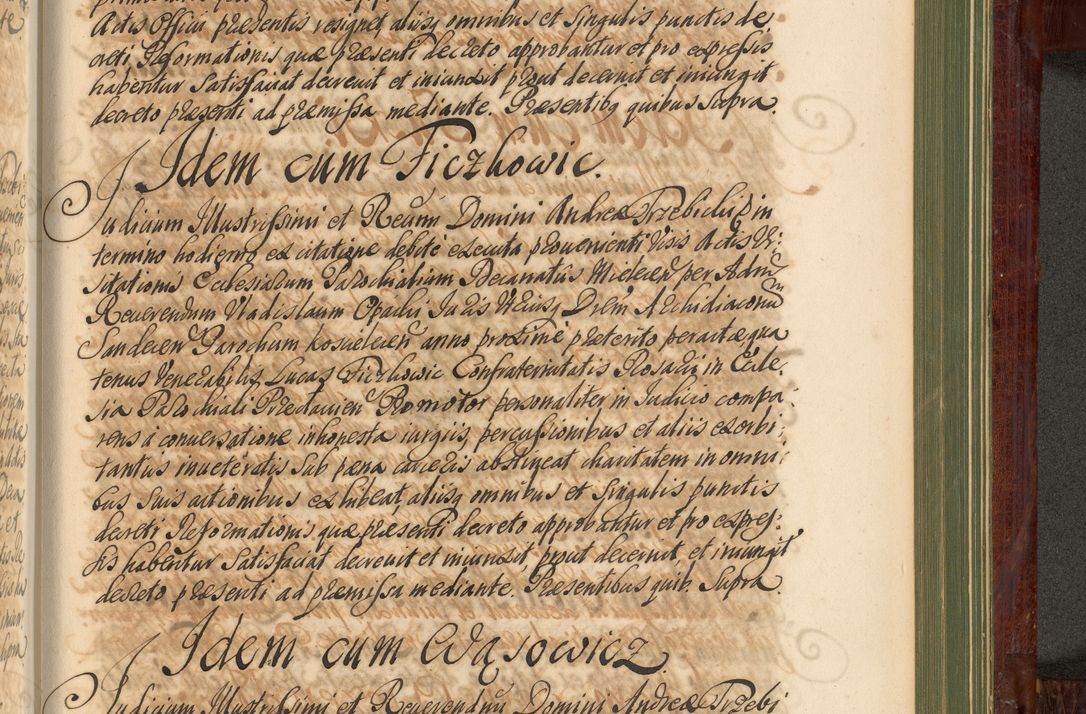 Actis Officii præsentis resignet, aliisq omnibus et singulis punctis de
creti Reformationis quæ præsenti decreto approbantur et pro expressis
habentur satisfaciat decrevit et iniunxit prout decernit et iniungit
decreto præsenti ad præmissa mediante. Præsentibq quibus supra
Idem cum Ficzkowic.
Judicium Illustrissimi et Reveri Domini Andreæ Trzebicki in
termino hodierno ex citatione debitè executa provenienti visis Actis Vi:
sitationis Ecclesiarum Parochialium Decanatus Mielecen per Admm
Reverendum Vladislaum Opacki Juris Utriusq Drem Archidiaconum
Sandecen Parochum Koscielecen anno proximè præterito peractæ qua
tenus Venerabilis Lucas Ficzkowic Confraternitatis Rosarii in Eccle:
sia Parochiali Przeclavien Promotor personaliter in Judicio compa:
rens à conversatione inhonesta iurgiis, percussionibus et aliis exorbi:
tantiis inveteratis sub pæna carceris abstineat charitatem in omni:
bus suis actionibus exhibeat, aliisq omnibus et singulis punctis
decreti Reformationis quæ præsenti decreto approbantur et pro expres:
sis habentur satisfaciat decrevit et iniunxit, prout decernit et iniungit
decreto præsenti ad præmissa mediante. Præsentibus quib. supra
Idem cum Wąsowicz
Judicium Illustrissimi et Reverendmi Domini Andreæ Trzebi